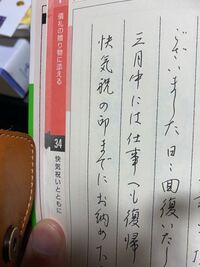 ございました 回復いたし
三月中には仕事へも復帰
快気祝の印までにお納めた
儀礼の贈り物に添える
34
快気祝いとともに